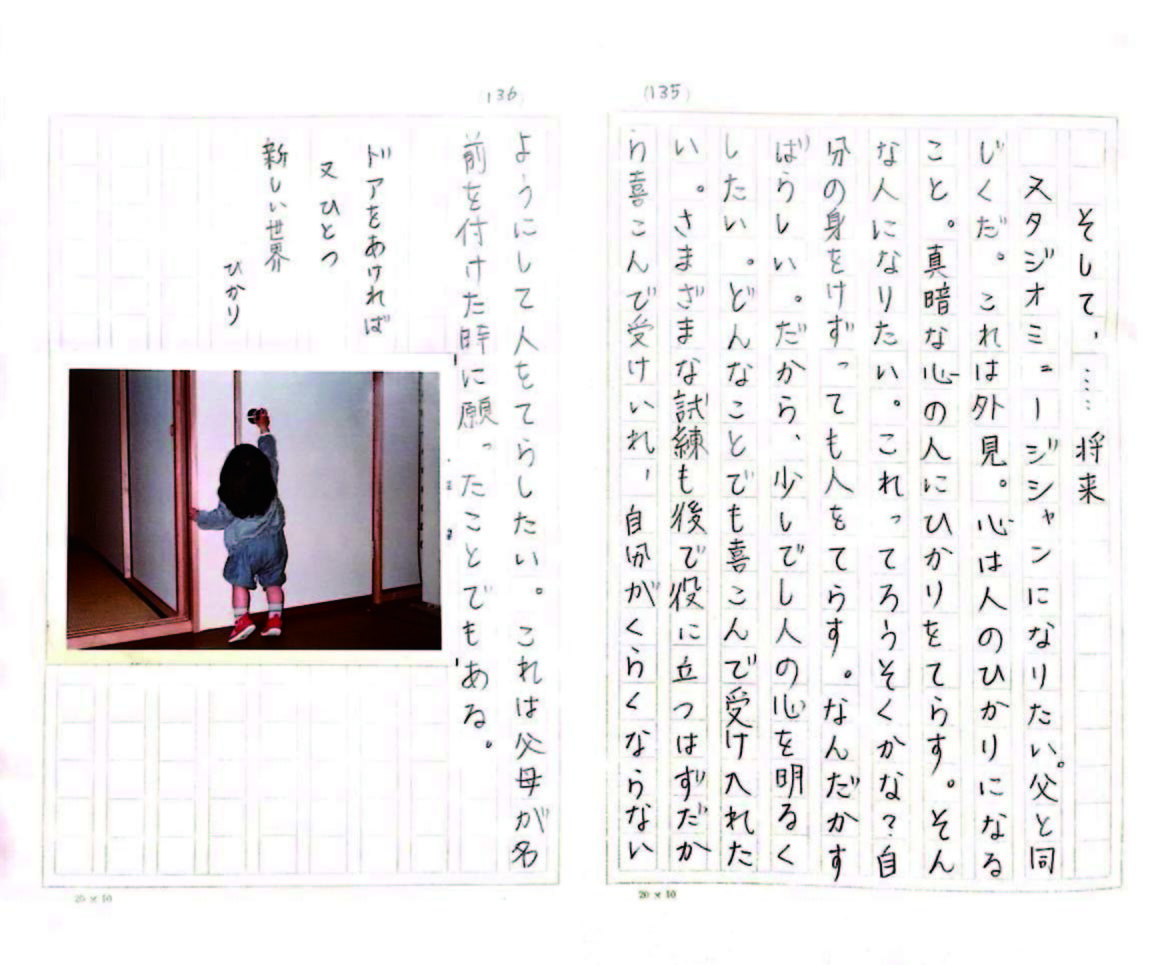 (135)
そして、……将来
スタジオミュージシャンになりたい。父と同
じくだ。これは外見。心は人のひかりになる
こと。真暗な心の人にひかりをてらす。そん
な人になりたい。これってろうそくかな？自
分の身をけずっても人をてらす。なんだかす
ばらしい。だから、少しでし人の心を明るく
したい。どんなことでも喜こんで受け入れた
い。さまざまな試練も後で役に立つはずだか
ら喜こんで受けいれ、自分がくらくならない
20×10
(136)
ようにして人をてらしたい。これは父母が名
前を付けた時に願ったことでもある。
ドアをあければ
又ひとつ
新しい世界
ひかり
20×10